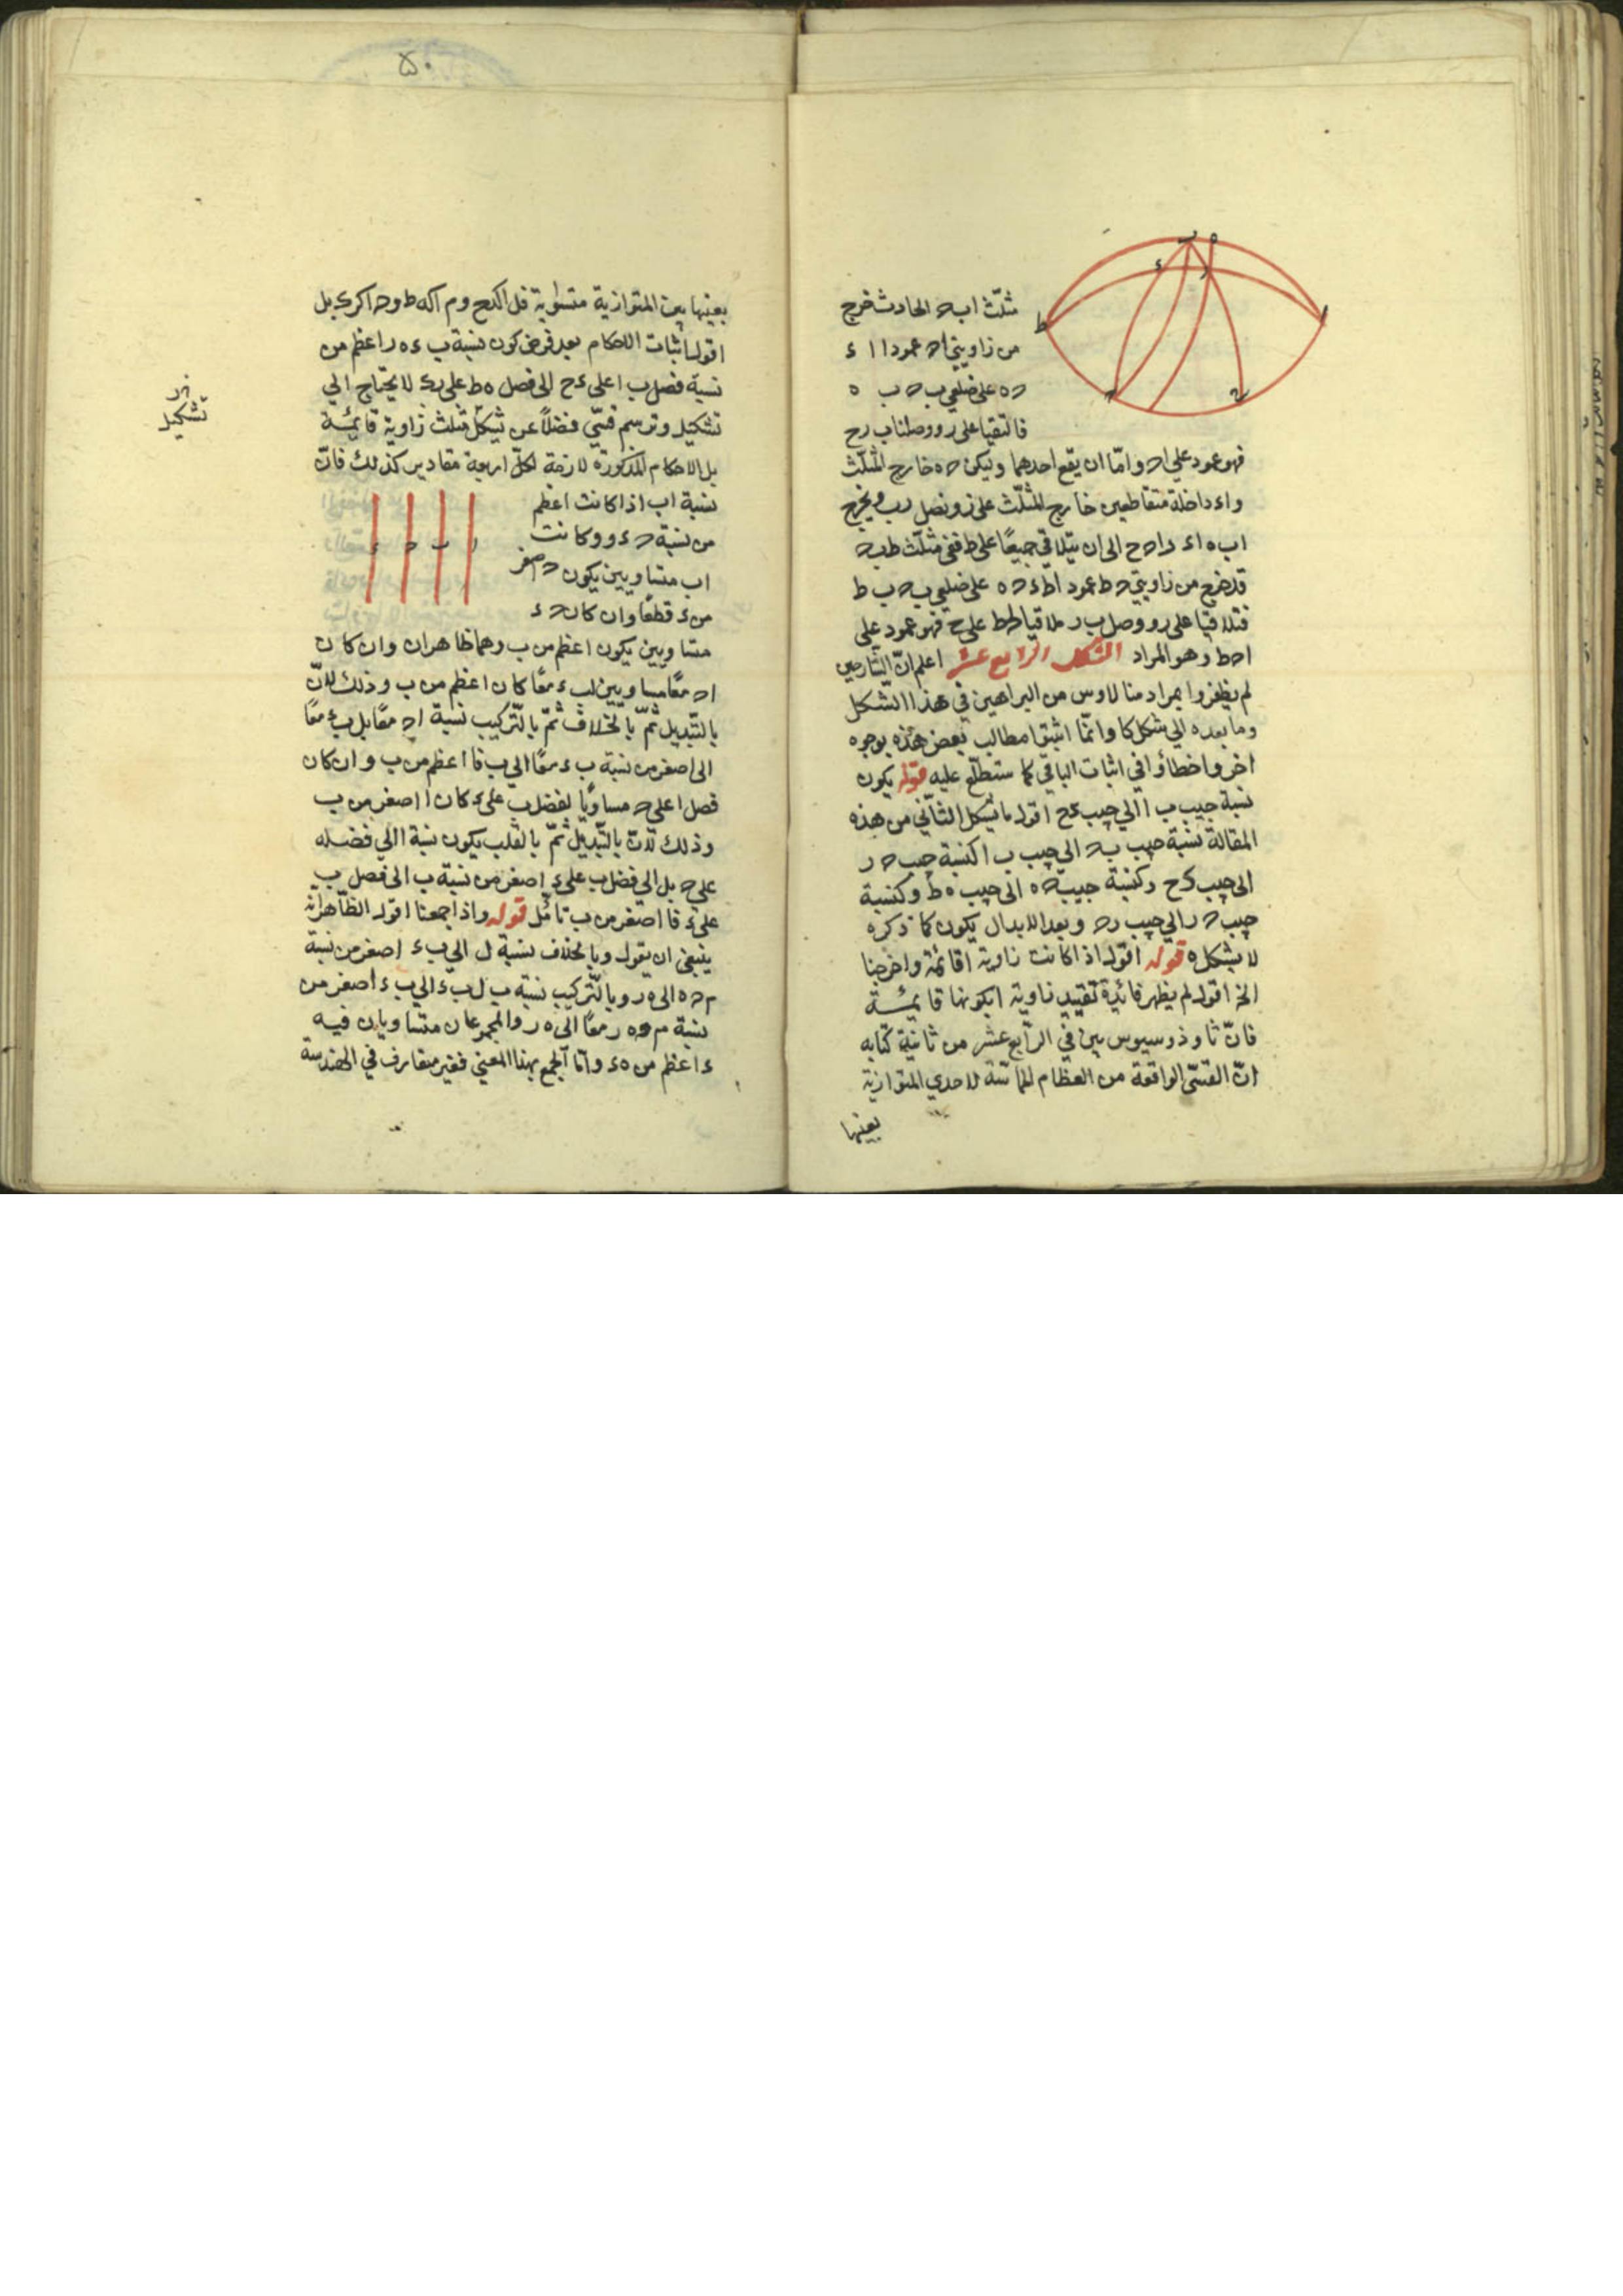 مثلّث اب ح الحادث خرج
من زاويتي اح عمودا ا ء
ح ه على ضلعي ب ح ب ه
فالتقيا على ر ووصلنا ب ر ح
فهو عمود على اح وامّا ان يقع احدهما وليكن ح ه خارج المثلّث
واء داخلة متقاطعين خارج المثلّث على ز ونصل ر ب ويخرج
اب ه اء راح ح الى ان يتلاقى جميعًا على ط ففي مثلّث ط ب ح
قد خرج من زاويتي ح ط عمودا ط ء ح ه على ضلعي ب ح ب ط
فتلاقيا على ر ووصل ب ر ملاقيا لح ط على ح فهو عمود على
ا ح ط وهو المراد الشكل الرابع عشر اعلم انّ الشارحين
لم يظفروا بمراد منالاوس من البراهين في هذا الشكل
وما بعده الى شكل كا وانّما اثبتوا مطالب بعض هذه بوجوه
اخر واخطأوا في اثبات الباقي كما ستطلّع عليه قوله يكون
نسبة جيب ب ا الى جيب ء ح اقول بالشكل الثاني من هذه
المقالة نسبة جيب ب ح الى جيب ب ا كنسبة جيب ح ر
الى جيب ء ح وكنسبة جيب ح ه الى جيب ه ط وكنسبة
جيب ح ر الى جيب ر ح وبعد الابدال يكون كما ذكره
لا بشكل ه قوله اقول اذا كانت زاوية ا قائمة واخرجنا
الخ اقول لم يظهر فائدة تقييد زاوية ا بكونها قايمة
فانّ ثاوذوسيوس بين في الرابع عشر من ثانية كتابه
انّ القسيّ الواقعة من العظام المماسّة لاحدى المتوازية
بعينها
۵۰
بعينها بين المتوازية متساوية فل ا كء ح و م ا كه ط و ح ا كر ى بل
اقول اثبات الاحكام بعد فرض كون نسبة ب ء ه ر اعظم من
نسبة فضل ب ا على ء ح الى فضل ه ط على ر ى لا يحتاج الى
تشكيل وترسم قسيّ فضلًا عن تشكل مثلث زاوية قايمة
بل الاحكام المذكورة لازمة لكلّ اربعة مقادير كذلك فانّ
نسبة اب اذا كانت اعظم
من نسبة ح ء و وكانت
اب متساويين يكون ح اصغر
من ء قطعًا وان كان ح ء
متساويين يكون ا عظم من ب وهما ظاهران وان كان
اح معًا مساويين لب ء معًا كان ا عظم من ب وذلك لانّ
بالتّبديل ثمّ بالخلاف ثمّ بالتّركيب نسبة اح معًا بل ب ء معًا
الى ا صغر من نسبة ب ء معًا الى ب فا اعظم من ب وان كان
فضل ا على ح مساويًا لفضل ب على ء كان ا اصغر من ب
وذلك لانّ بالتّبديل ثمّ بالقلب يكون نسبة ا الى فضله
على ح بل الى فضل ب على ء اصغر من نسبة ب الى فضل ب
على ء فا اصغر من ب تامّل قوله واذا جمعنا اقول الظّاهر انّه
ينبغي ان يقول وبالخلاف نسبة ل الى ب ء اصغر من نسبة
م ح ه الى ه ر وبالتّركيب نسبة ب ل ب ء الى ب ء اصغر من
نسبة م ح ه ر معًا الى ه ر والمجموعان متساويان فب
ء اعظم من ه ء وامّا الجمع بهذا المعنى فغير متعارف في الهندسة
تشكيل